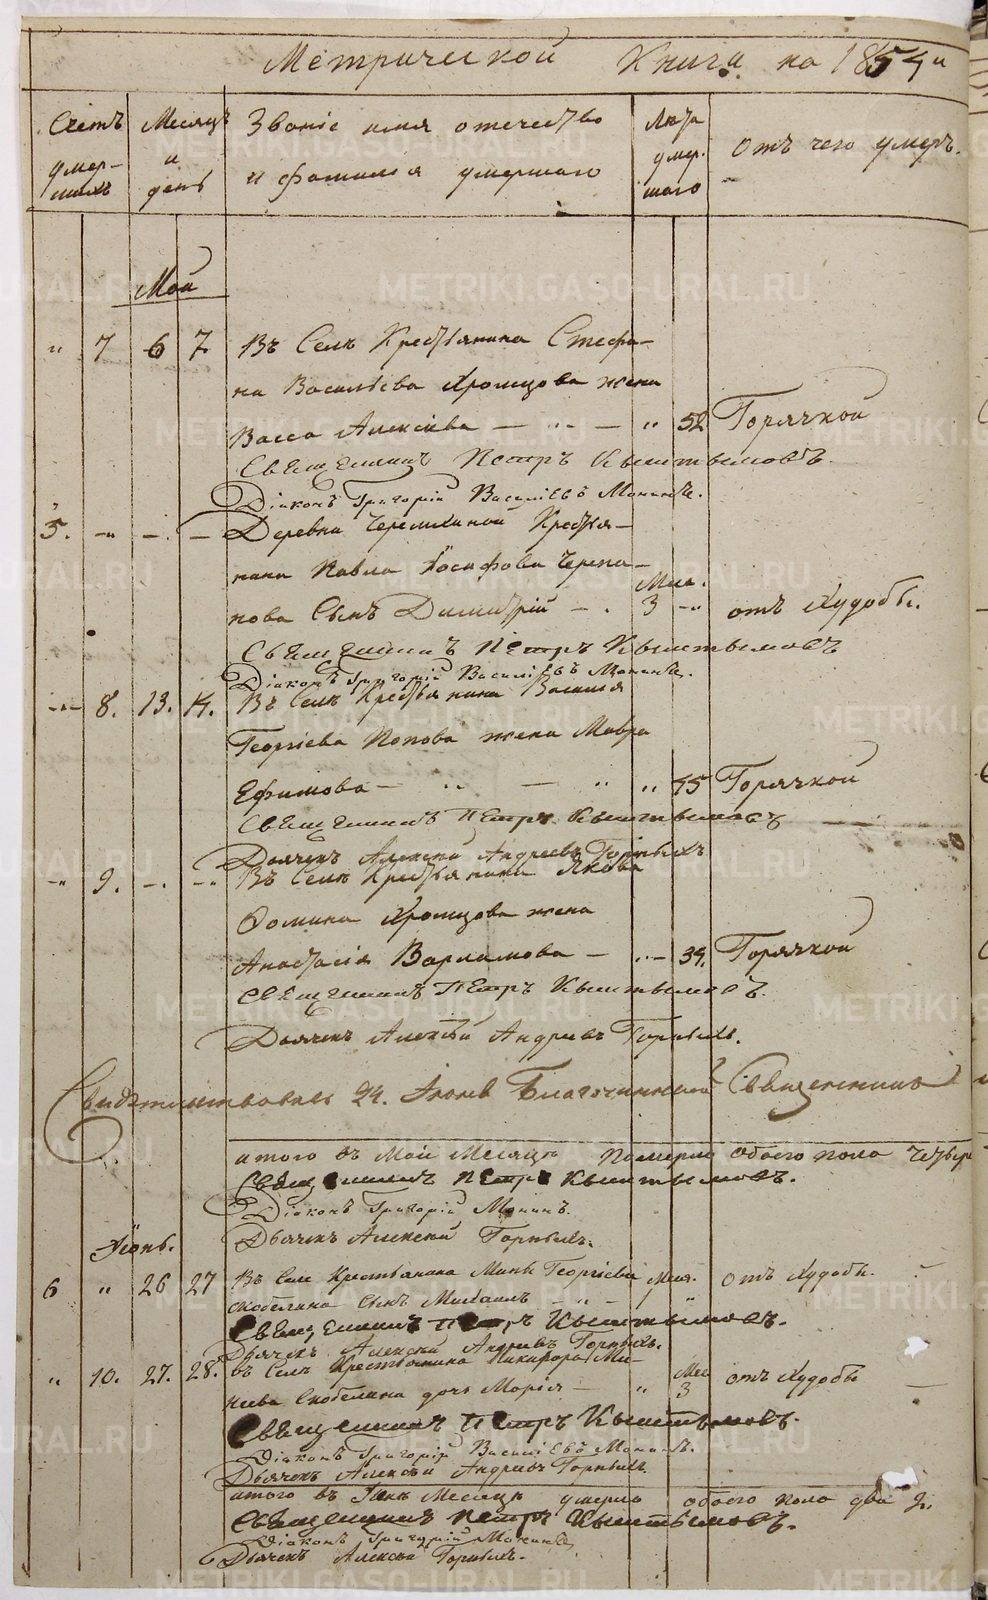 Метрической Книги на 1854 и
Счетъ умер- шихъ
Месяцъ и день
Званiе имя отечество и фамилiя умершаго
Лѣта умер. шаго
Отъ чего умеръ.
Май
" 7 6 7 Въ Селѣ Крестьянина Стефа-
на Васильева Хромцова жена
Васса Алексiева — " — " 52 Горячкой
Священникъ Петръ Кыштымовъ.
Дiаконъ Григорiй Васильевъ Мокинъ.
5. — " — . — Деревни Черемхиной Крестья-
нина Павла Iосифова Черепа- Меся.
нова Сынъ Димитрiй — . 3 — " отъ Худобы.
Священникъ Петръ Кыштымовъ
Дiаконъ Григорiй Васильевъ Мокинъ.
— " — 8. 13. 14. Въ Селѣ Крестьянина Василья
Георгiева Попова жена Мавра
Ефимова — " — " " 45 Горячкой
Священникъ Петръ Кыштымовъ
Дьячекъ Алексiй Андреевъ Горныхъ
— " 9. — . — . Въ Селѣ Крестьянина Якова
Фомина Хромцова жена
Анастасiя Варламова — " — 39. Горячкой
Священникъ Петръ Кыштымовъ.
Дьячекъ Алексiй Андреевъ Горныхъ.
Свидѣтельствовалъ 24. Iюня Благочинный Священникъ
итого въ Май Месяцѣ померло обоего пола четыре
Священникъ Петръ Кыштымовъ.
Дiаконъ Григорiй Мокинъ.
Iюнь. Дьячекъ Алексiй Горныхъ.
6 " 26 27 Въ Селѣ Крестьянина Георгiева Меся. отъ Худобы.
Скобелина сынъ Михаилъ — " — "
Священникъ Петръ Кыштымовъ.
Дьячекъ Алексiй Андреевъ Горныхъ.
" 10. 27. 28. въ Селѣ Крестьянина Никифора Ми- Мес
неева Скобелина дочь Марiя — " 3 отъ Худобы —
Священникъ Петръ Кыштымовъ.
Дiаконъ Григорiй Васильевъ Мокинъ.
Дьячекъ Алексiй Андреевъ Горныхъ.
итого въ Iюнѣ Месяцѣ умерло обоего пола два 2.
Священникъ Петръ Кыштымовъ.
Дiаконъ Григорiй Мокинъ
Дьячекъ Алексiй Горныхъ.
METRIKI.GASO-URAL.RU